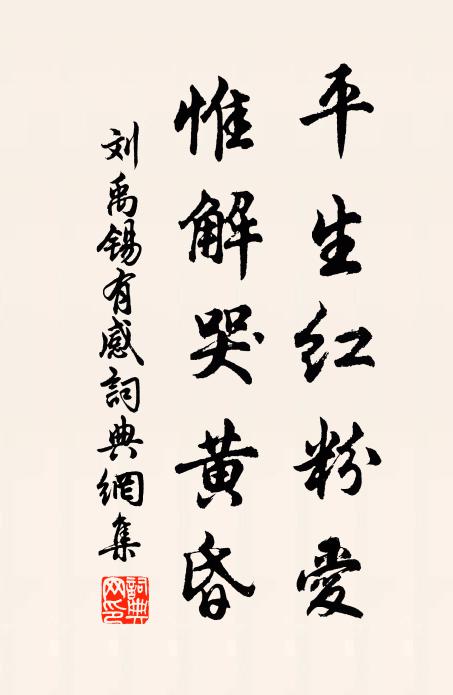 平生红粉愛
惟解哭黄昏
刘禹锡有感詞典網集
詞典網印